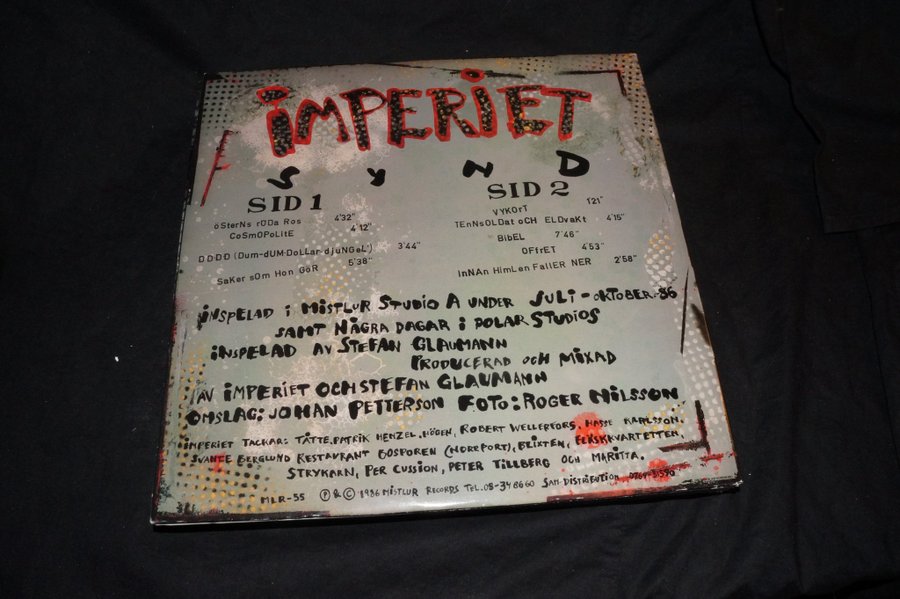 iMPERiET
SYND
SID 1
öSterNs röDa Ros 4'32"
CoSMOPoLitE 4'12"
DDDD (Dum-dUM-DoLLar-djuNGeL) 3'44"
SaKer sOm Hon GöR 5'38"
SID 2
VYKOrT 1'21"
TEnNsOLDat oCH ELDvaKt 4'15"
BibEL 7'46"
OFfrET 4'53"
InNAn HimLen FallER NER 2'58"
iNSPELAD i MiSTLUR STUDiO A UNDER JULi - OKTOBER -86
SAMT NÅGRA DAGAR i POLAR STUDiOS
iNSPELAD AV STEFAN GLAUMANN
PRODUCERAD OCH MiXAD
AV iMPERiET OCH STEFAN GLAUMANN
OMSLAG: JOHAN PETTERSON FOTO: ROGER NiLSSON
iMPERiET TACKAR: TÅTTE, PATRiK HENZEL, HÖGEN, ROBERT WELLERFORS, HASSE KARLSSON,
SVANTE BERGLUND RESTAURANT BOSFOREN (HÖREPORT), BLiXTEN, FLÄSKKVARTETTEN,
STRYKARN, PER CUSSiON, PETER TiLLBERG OCH MARiTTA.
MLR-55 Ⓟ & © 1986 MiSTLUR RECORDS TEL. 08-34 86 60 SAM-DiSTRiBUTiON 0764-31590